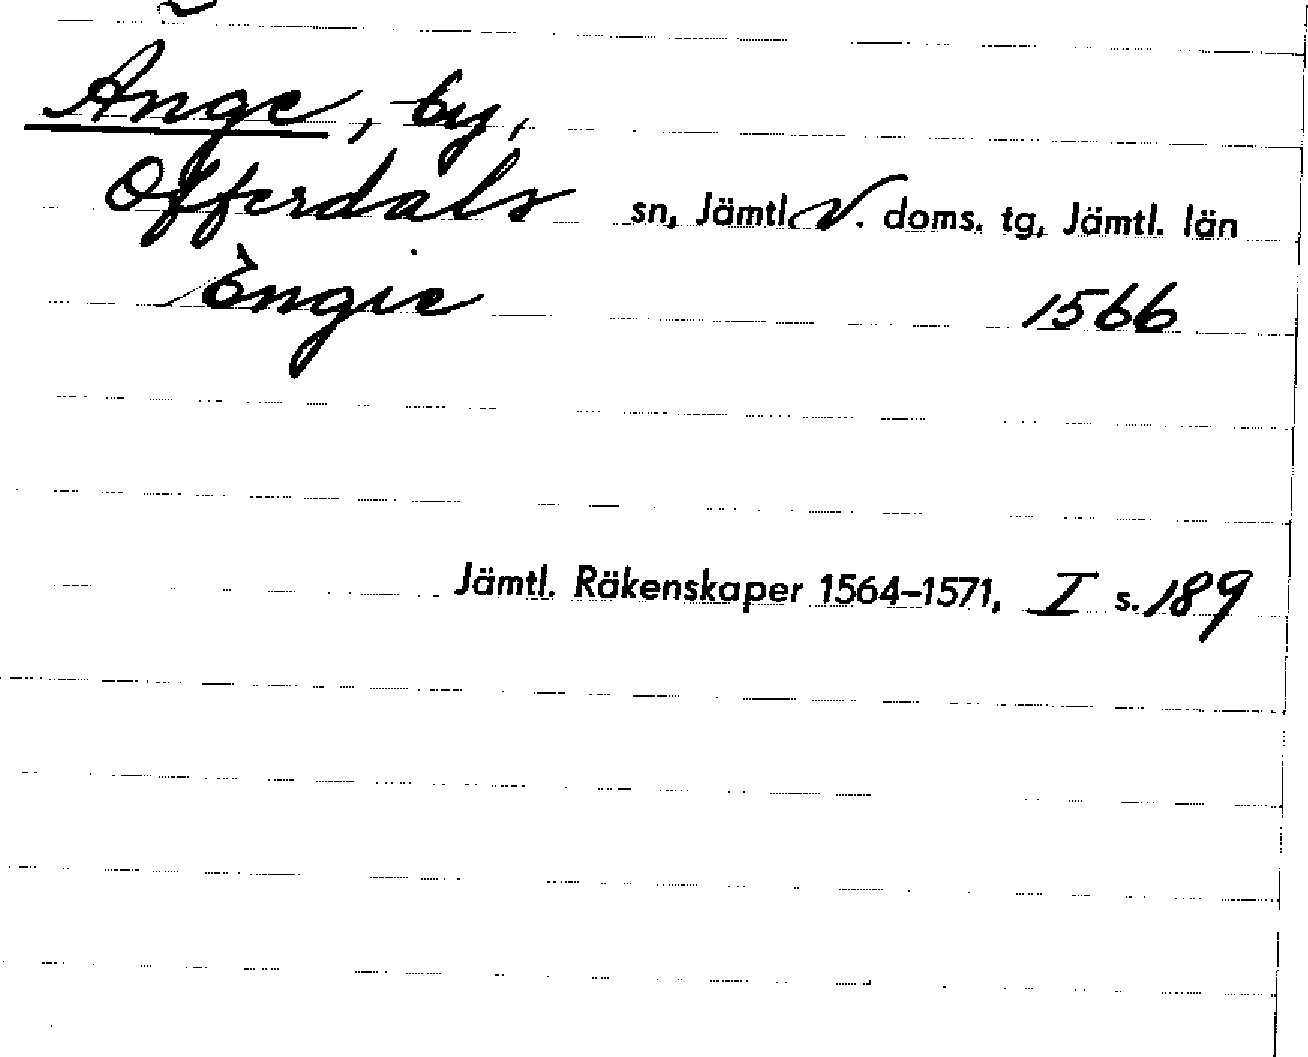 Änge, by,
Offerdals sn, Jämtl. V. doms. tg, Jämtl. län
Engie 1566
Jämtl. Räkenskaper 1564–1571, I s. 189